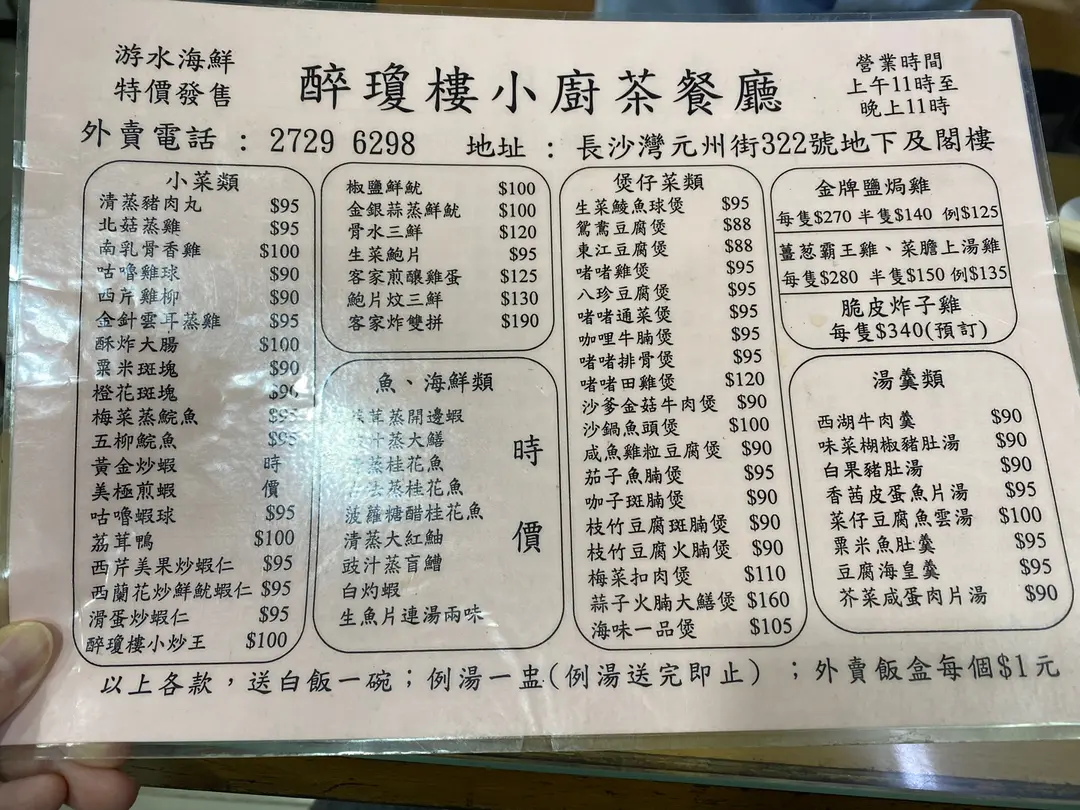 游水海鮮
特價發售
醉瓊樓小廚茶餐廳
營業時間
上午11時至
晚上11時
外賣電話 : 2729 6298 地址 : 長沙灣元州街322號地下及閣樓
小菜類
清蒸豬肉丸 $95
北菇蒸雞 $95
南乳骨香雞 $100
咕嚕雞球 $90
西芹雞柳 $90
金針雲耳蒸雞 $95
酥炸大腸 $100
粟米斑塊 $90
橙花斑塊 $90
梅菜蒸鯇魚 $95
五柳鯇魚 $95
黃金炒蝦 時
美極煎蝦 價
咕嚕蝦球 $95
荔茸鴨 $100
西芹美果炒蝦仁 $95
西蘭花炒鮮魷蝦仁 $95
滑蛋炒蝦仁 $95
醉瓊樓小炒王 $100
椒鹽鮮魷 $100
金銀蒜蒸鮮魷 $100
骨水三鮮 $120
生菜鮑片 $95
客家煎釀雞蛋 $125
鮑片炆三鮮 $130
客家炸雙拼 $190
魚、海鮮類
茸蒸開邊蝦
汁蒸大鱔
蒸桂花魚
蒸桂花魚
菠蘿糖醋桂花魚
清蒸大紅鮋
豉汁蒸盲鰽
白灼蝦
生魚片連湯兩味
時
價
煲仔菜類
生菜鯪魚球煲 $95
鴛鴦豆腐煲 $88
東江豆腐煲 $88
啫啫雞煲 $95
八珍豆腐煲 $95
啫啫通菜煲 $95
咖哩牛腩煲 $95
啫啫排骨煲 $95
啫啫田雞煲 $120
沙爹金菇牛肉煲 $90
沙鍋魚頭煲 $100
咸魚雞粒豆腐煲 $90
茄子魚腩煲 $95
咖子斑腩煲 $90
枝竹豆腐斑腩煲 $90
枝竹豆腐火腩煲 $90
梅菜扣肉煲 $110
蒜子火腩大鱔煲 $160
海味一品煲 $105
金牌鹽焗雞
每隻$270 半隻$140 例$125
薑葱霸王雞、菜膽上湯雞
每隻$280 半隻$150 例$135
脆皮炸子雞
每隻$340(預訂)
湯羹類
西湖牛肉羹 $90
味菜椒椒豬肚湯 $90
白果豬肚湯 $90
香茜皮蛋魚片湯 $95
菜仔豆腐魚雲湯 $100
粟米魚肚羹 $95
豆腐海皇羹 $95
芥菜咸蛋肉片湯 $90
以上各款，送白飯一碗；例湯一盅(例湯送完即止)；外賣飯盒每個$1元